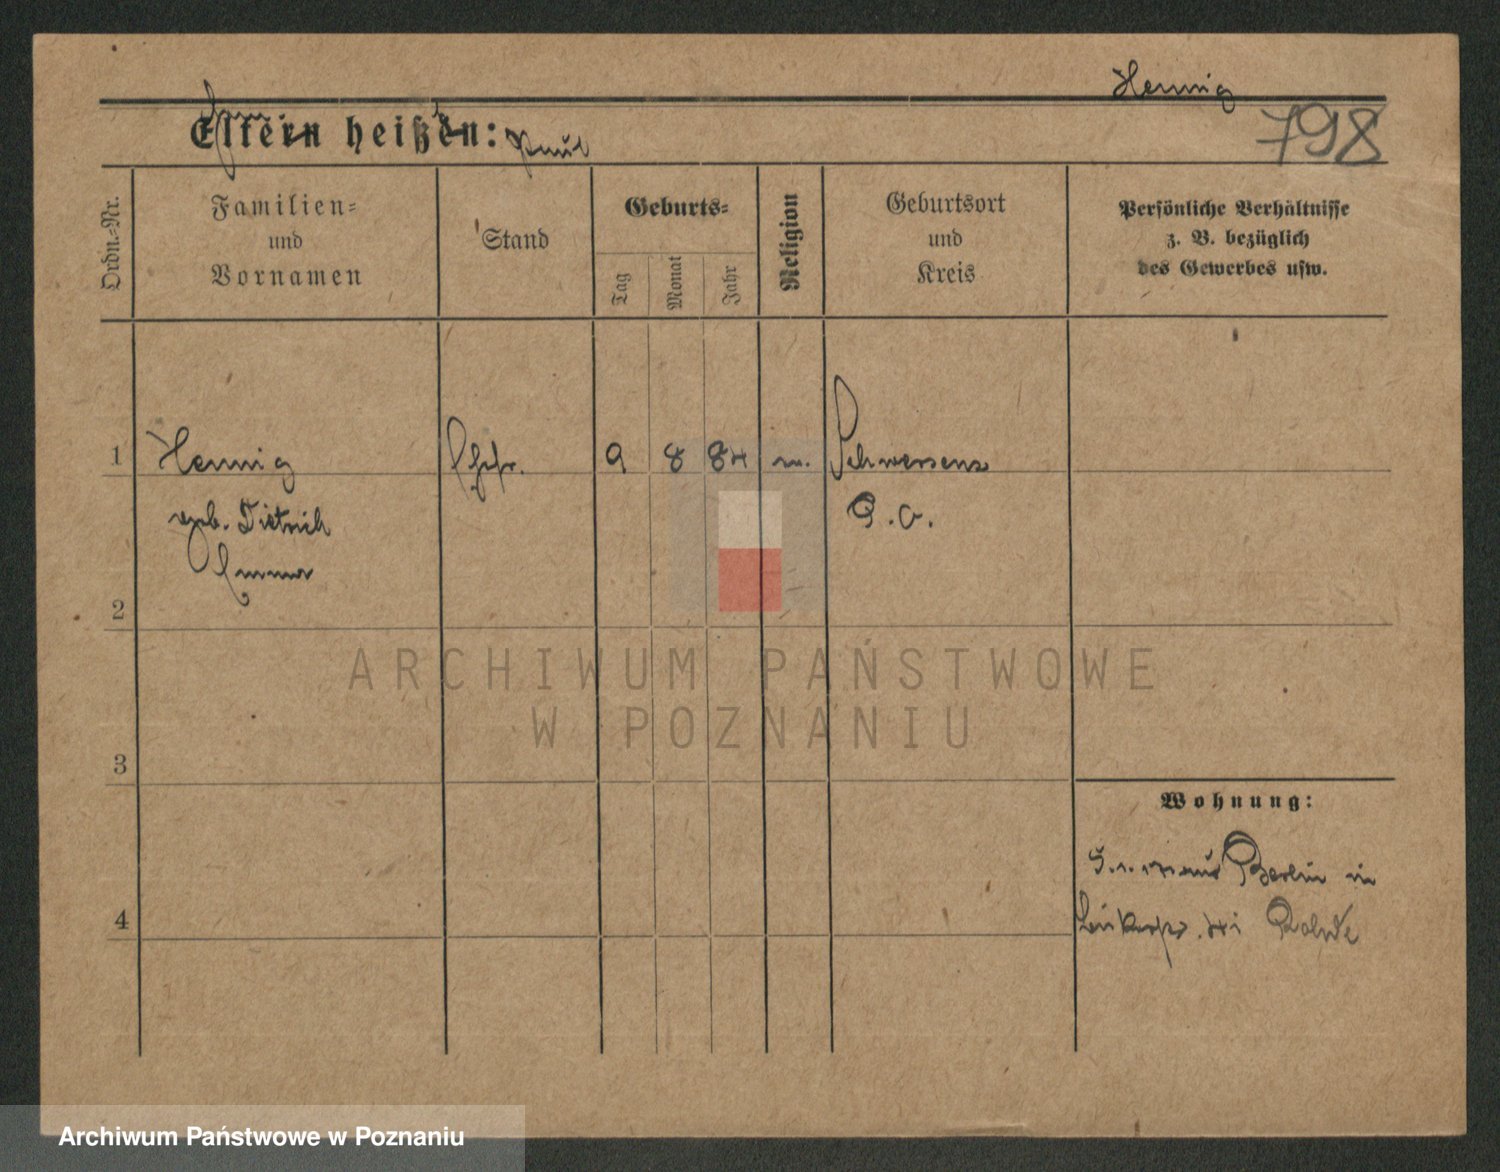 Hennig
798
Eltern heißen: Paul
Ordn.=Nr.
Familien=
und
Vornamen
Stand
Geburts=
Tag
Monat
Jahr
Religion
Geburtsort
und
Kreis
Persönliche Verhältnisse
z. B. bezüglich
des Gewerbes usw.
1
Hennig
Ehefr.
9
8
84
Schwersenz
geb. Dietrich
P. O.
Emma
2
ARCHIWUM PAŃSTWOWE
W POZNANIU
3
Wohnung:
aus Berlin in
4
Archiwum Państwowe w Poznaniu